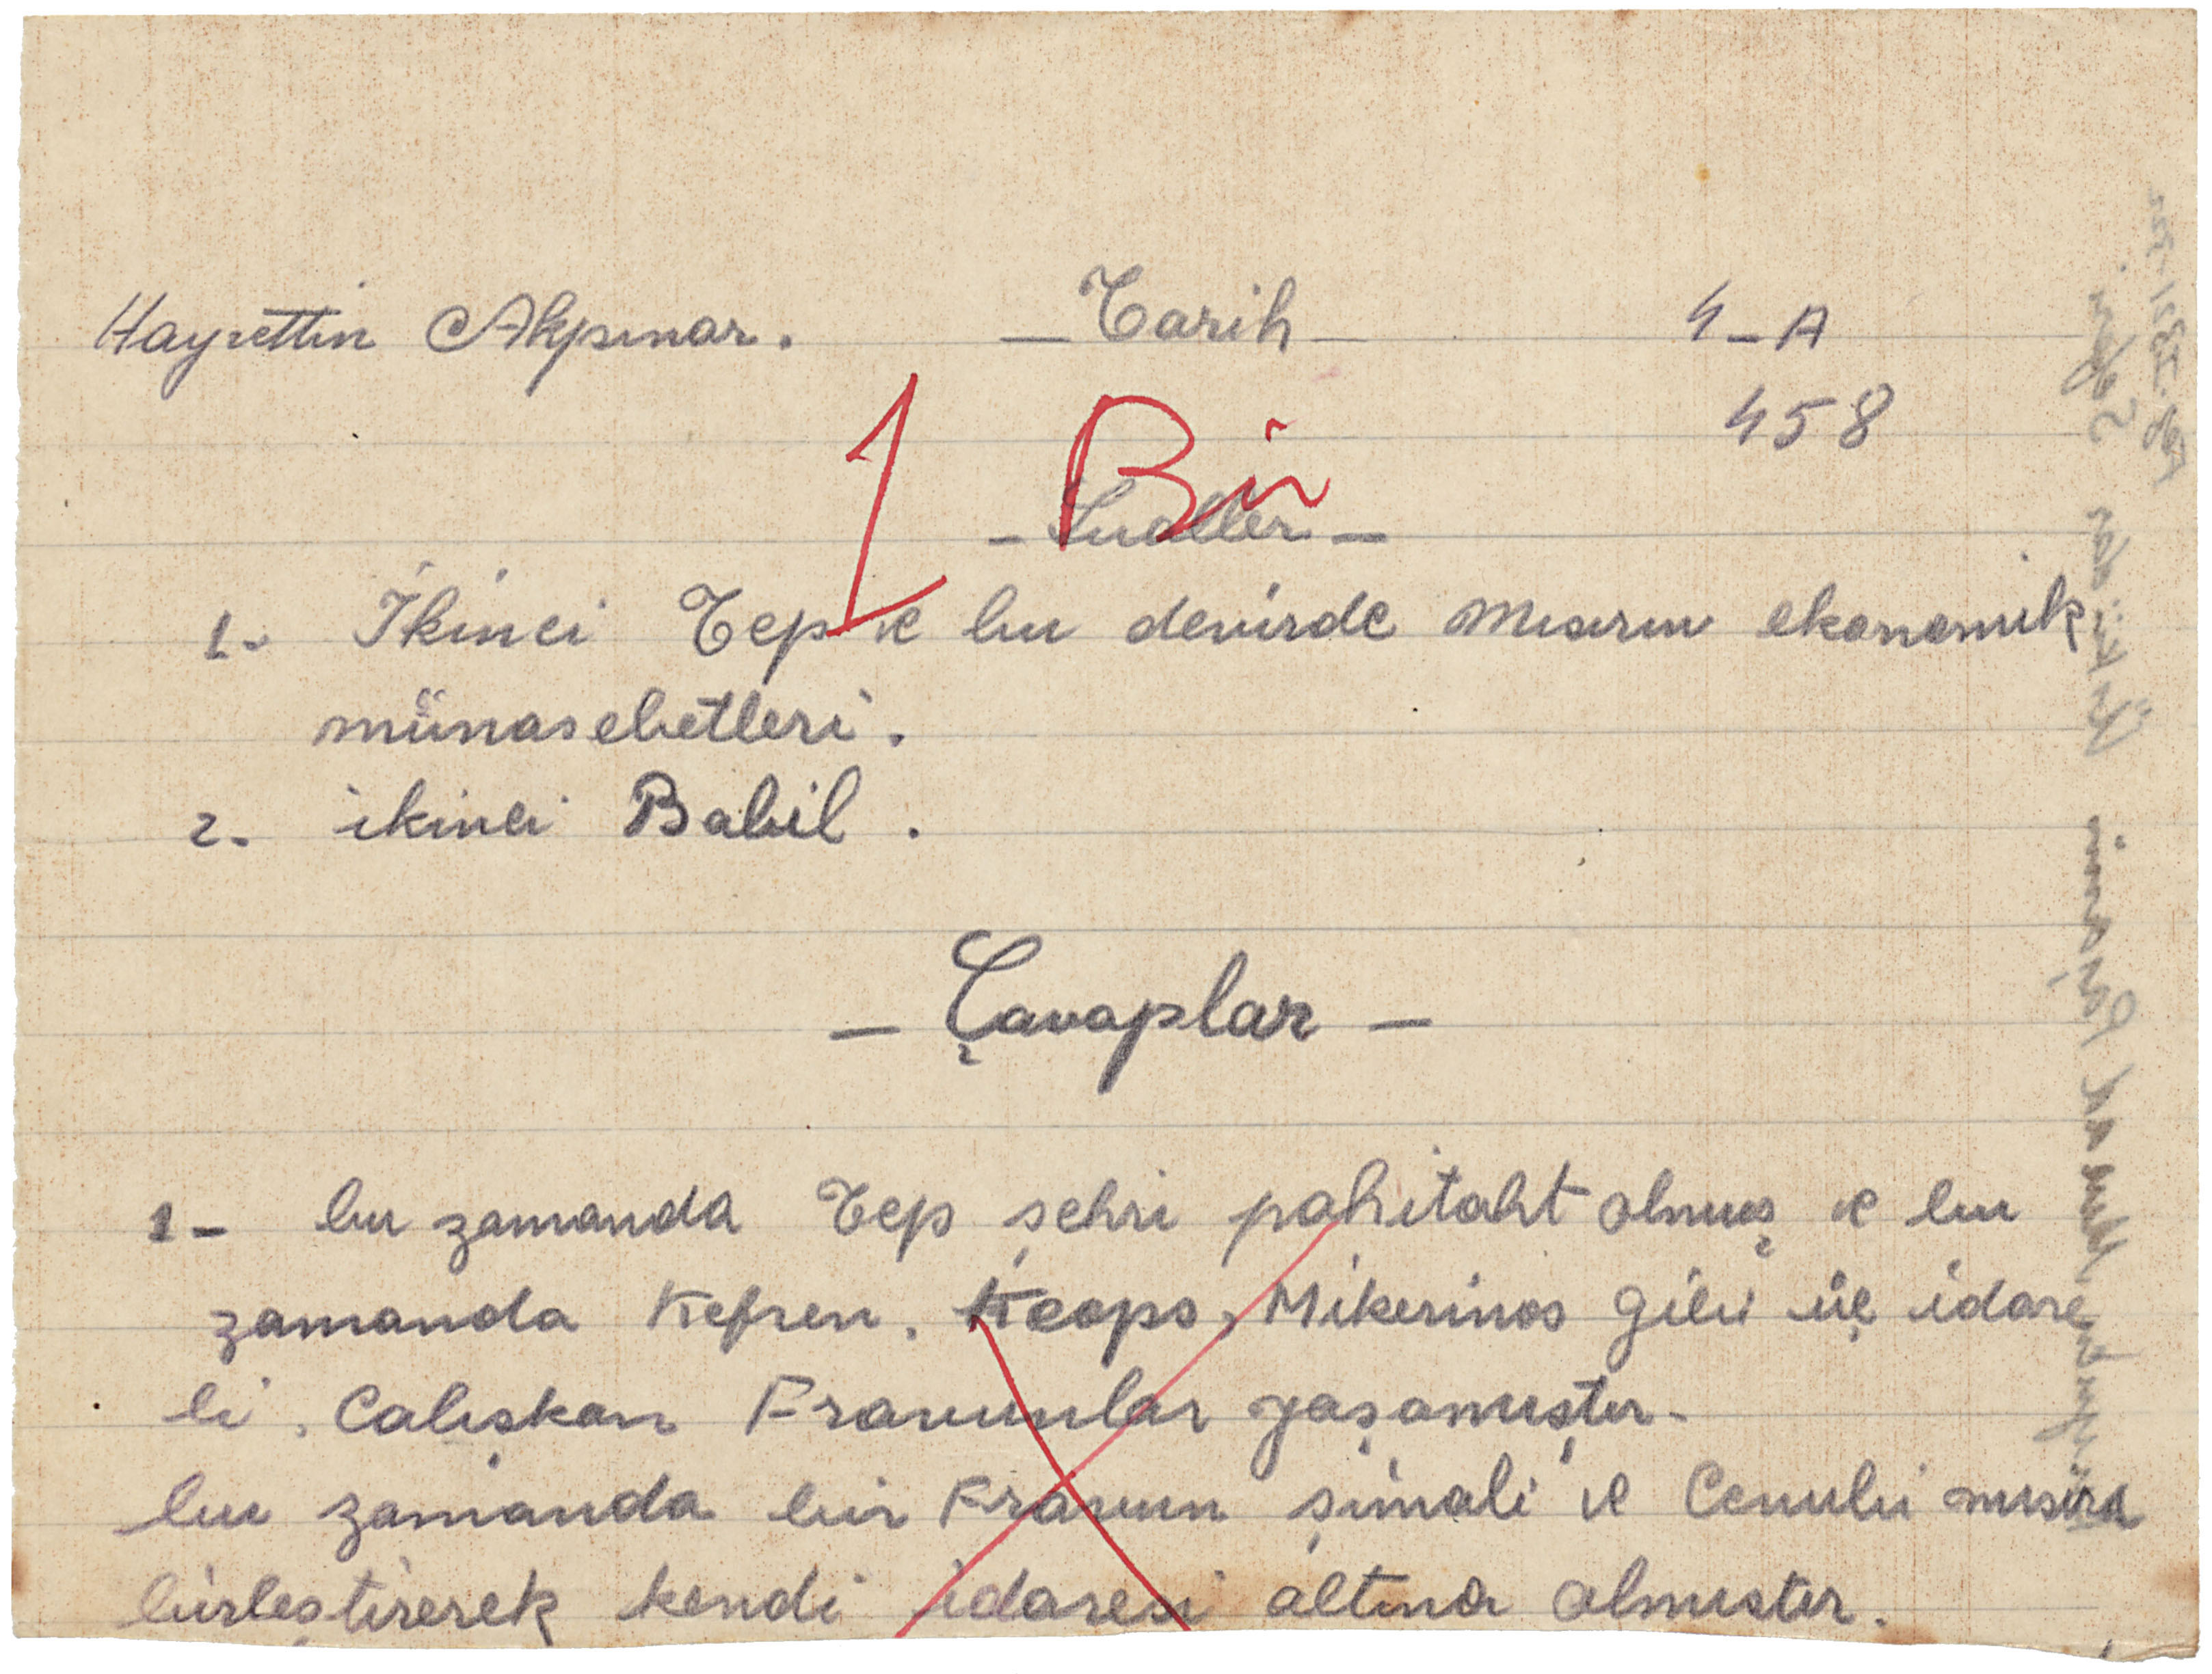 Hayrettin Akpınar. — Tarih — 4-A
458
1 Bir
- Sualler -
1- İkinci Tep ve bu devirde Mısırın ekonomik
münasebetleri.
2- ikinci Babil.
- Çavaplar -
1- bu zamanda Tep şehri pahitaht olmuş ve bu
zamanda Kefren. Keops, Mikerinos gibi üç idare
li, Calışkan Fravunlar yaşamıştır-
bu zamanda bir Fravun şimali ve Cenubi mısırı
birleştirerek kendi idaresi altına almıştır.